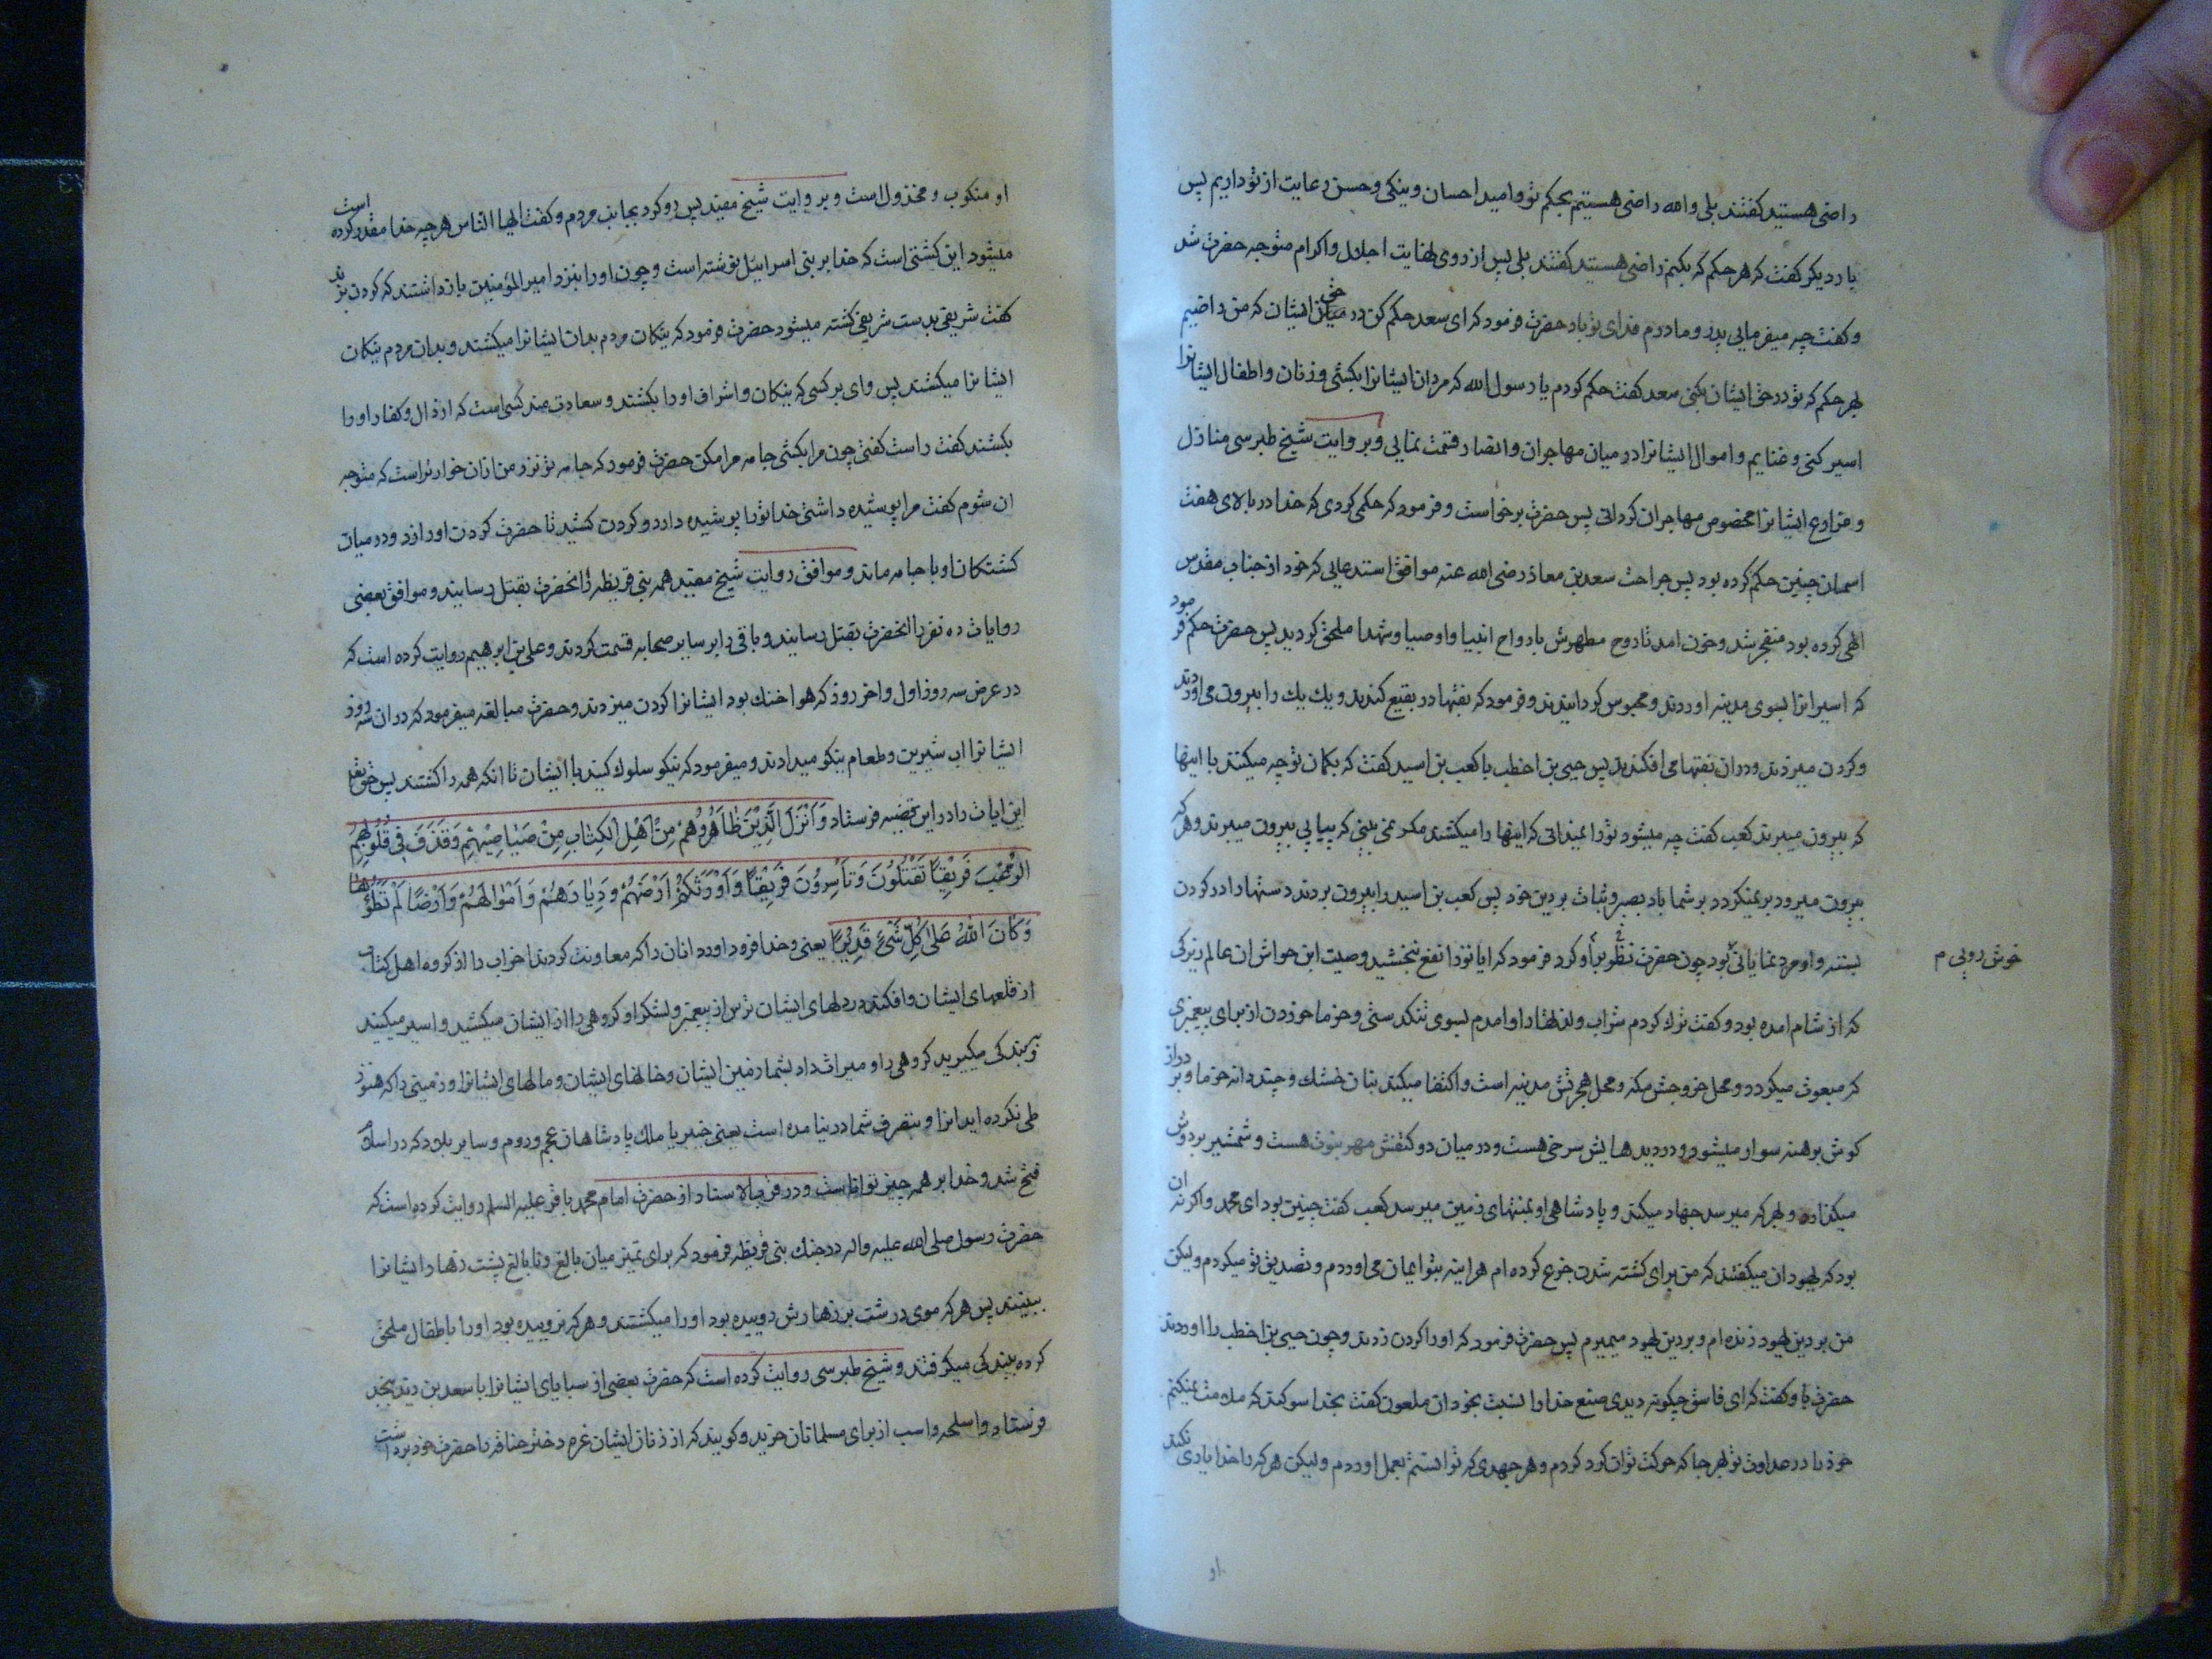 راضی هستید کفتند بلی والله راضی هستیم بحکم تو و امید احسان و نیکی و حسن رعایت از تو داریم پس
بار دیکر کفت که هر حکم که بکنم راضی هستید کفتند بلی پس از روی نهایت اجلال و اکرام متوجه حضرت شد
و کفت چه میفرمایی پدر و مادرم فدای تو باد حضرت فرمود که ای سعد حکم کن در حق ایشان که من راضیم
بهر حکم که تو در حق ایشان بکنی سعد کفت حکم کردم یا رسول الله که مردان ایشانرا بکشی و زنان و اطفال ایشانرا
اسیر کنی و غنایم و اموال ایشانرا در میان مهاجران و انصار قسمت نمایی و بروایت شیخ طبرسی منازل
و مزارع ایشانرا مخصوص مهاجران کردانی پس حضرت برخواست و فرمود که حکمی کردی که خدا در بالای هفت
اسمان چنین حکم کرده بود پس جراحت سعد بن معاذ رضی الله عنه موافق استدعایی که خود از جناب مقدس
الهی کرده بود منفجر شد و خون امد تا روح مطهرش بارواح انبیا و اوصیا و شهدا ملحق کردید پس حضرت حکم فرمود
که اسیرانرا بسوی مدینه اوردند و محبوس کردانیدند و فرمود که نقبها در بقیع کندند و یك یك را بیرون می اوردند
و کردن میزدند و دران نقبها می افکندند پس حیی بن اخطب با کعب بن اسید کفت که بکمان تو چه میکنند با اینها
که بیرون میبرند کعب کفت چه میشود ترا نمیدانی که اینها را میکشند مکر نمی بینی که پیاپی بیرون میبرند و هر که
بیرون میرود بر نمیکردد بر شما باد بصبر و ثبات بر دین خود پس کعب بن اسید را بیرون بردند دستها را در کردن
بسته و او مرد نمایانی بود چون حضرت نظر بر او کرد فرمود که ایا ترا نفع نبخشید وصیت ابن حواش ان عالم زیرکی
خوش رویی م
که از شام امده بود و کفت ترك کردم شراب و لذتها را و امدم بسوی تنکدستی و خرما خوردن از برای پیغمبری
که مبعوث میکردد و محل خروجش مکه و محل هجرتش مدینه است و اکتفا میکند بنان خشك و چند دانه خرما و بر دراز
کوش برهنه سوار میشود و در دیدهایش سرخی هست و در میان دو کتفش مهر نبوت هست و شمشیر بر دوش
میکذارد و بهر که میرسد جهاد میکند و پادشاهی او بمنتهای زمین میرسد کعب کفت چنین بود ای محمد و اکر نه ان
بود که یهودان میکفتند که من برای کشته شدن جزع کرده ام هراینه بتو ایمان می اوردم و تصدیق تو میکردم ولیکن
من بر دین یهود زنده ام و بر دین یهود میمیرم پس حضرت فرمود که اورا کردن زدند و چون حیی بن اخطب را اوردند
حضرت باو کفت که ای فاسق چکونه دیدی صنع خدا را نسبت بخود ان ملعون کفت بخدا سوکند که ملامت نمیکنم
خود را در عداوت تو بهر جا که حرکت توان کرد کردم و هر جهدی که توانستم بعمل اوردم ولیکن هر که را خدا یاری نکند
او
او منکوب و مخذول است و بروایت شیخ مفید پس رو کرد بجانب مردم و کفت ایها الناس هر چه خدا مقدر کرده است
میشود این کشتنی است که خدا بر بنی اسرائیل نوشته است و چون اورا نبزد امیر المؤمنین بازداشتند که کردن بزند
کفت شریفی بدست شریفی کشته میشود حضرت فرمود که نیکان مردم بدان ایشانرا میکشند و بدان مردم نیکان
ایشانرا میکشند پس وای بر کسی که نیکان و اشراف اورا بکشند و سعادتمند کسی است که ارذال و کفار اورا
بکشند کفت راست کفتی چون مرا بکشی جامه مرا مکن حضرت فرمود که جامه تو نزد من ازان خوارتر است که متوجه
ان شوم کفت مرا پوشیده داشتی خدا ترا پوشیده دارد و کردن کشید تا حضرت کردن اورا زد و در میان
کشتکان او با جامه ماند و موافق روایت شیخ مفید همه بنی قریظه را انحضرت بقتل رسانید و موافق بعضی
روایات ده نفر را انحضرت بقتل رسانید و باقی را بر سایر صحابه قسمت کردند و علی بن ابرهیم روایت کرده است که
در عرض سه روز اول و اخر روز که هوا خنك بود ایشانرا کردن میزدند و حضرت مبالغه میفرمود که دران سه روز
ایشانرا اب شیرین و طعام نیکو میدادند و میفرمود که نیکو سلوك کنید با ایشان تا انکه همه را کشتند پس حق تعالی
این ایات را در این قضیه فرستاد وَاَنْزَلَ الَّذِیْنَ ظَاهَرُوهُمْ مِنْ اَهْلِ الْکِتَابِ مِنْ صَیَاصِیْهِمْ وَقَذَفَ فِی قُلُوْبِهِمُ
الرُّعْبَ فَرِیْقًا تَقْتُلُوْنَ وَتَأْسِرُوْنَ فَرِیْقًا وَاَوْرَثَکُمْ اَرْضَهُمْ وَدِیَارَهُمْ وَاَمْوَالَهُمْ وَاَرْضًا لَمْ تَطَؤُهَا
وَکَانَ اللّٰهُ عَلٰی کُلِّ شَیْءٍ قَدِیْرًا یعنی و خدا فرود اورد انان را که معاونت کردند احزاب را از کروه اهل کتاب
از قلعهای ایشان و افکند در دلهای ایشان ترس از پیغمبر و لشکر او کروهی را از ایشان میکشید و اسیر میکنید
و ببندکی میکیرید کروهی را و میراث داد بشما زمین ایشان و خانهای ایشان و مالهای ایشانرا و زمینی را که هنوز
طی نکرده اید انرا و بتصرف شما در نیامده است یعنی خیبر یا ملك پادشاهان عجم و روم و سایر بلاد که در اسلام
فتح شد و خدا بر همه چیز توانا است و در قرب الاسناد از حضرت امام محمد باقر علیه السلم روایت کرده است که
حضرت رسول صلی الله علیه واله در جنك بنی قریظه فرمود که برای تمیز میان بالغ و نابالغ پشت زهار ایشانرا
ببینند پس هر که موی درشت بر زهارش روییده بود اورا میکشتند و هر که نروییده بود اورا باطفال ملحق
کرده ببندکی میکرفتند و شیخ طبرسی روایت کرده است که حضرت بعضی از سبایای ایشانرا با سعد بن زید بنجد
فرستاد و اسلحه و اسب از برای مسلمانان خرید و کویند که از زنان ایشان عمره دختر خنافه را حضرت خود برداشت